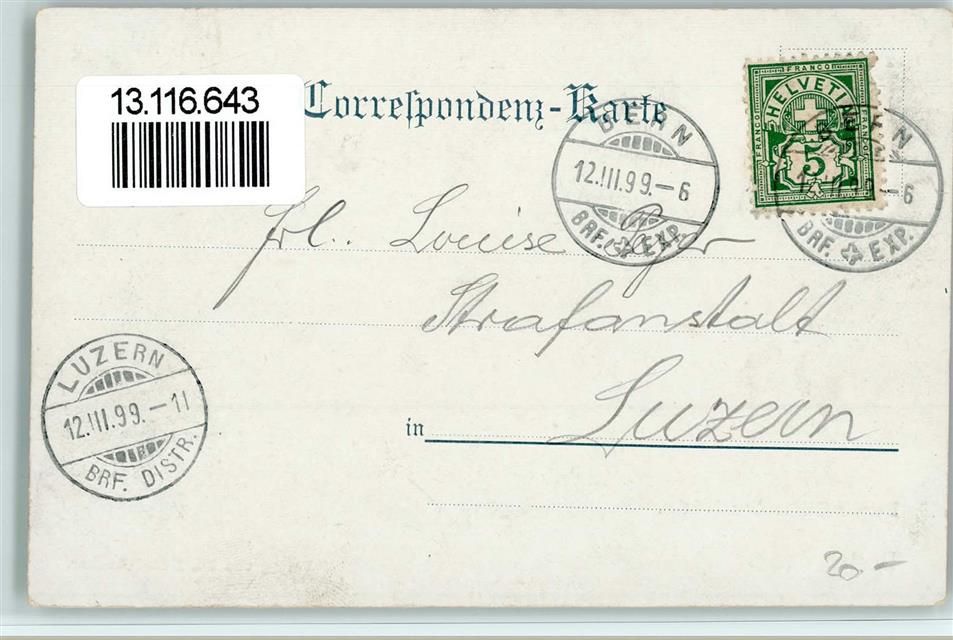 13.116.643
Correspondenz-Karte
FRANCO
HELVETIA
FRANCO
FRANCO
5
BERN
12.III.99.-6
BRF. EXP.
BERN
-6
BRF. EXP.
Frl. Louise
Strafanstalt
in Luzern
LUZERN
12.III.99.-11
BRF. DISTR.
20.-